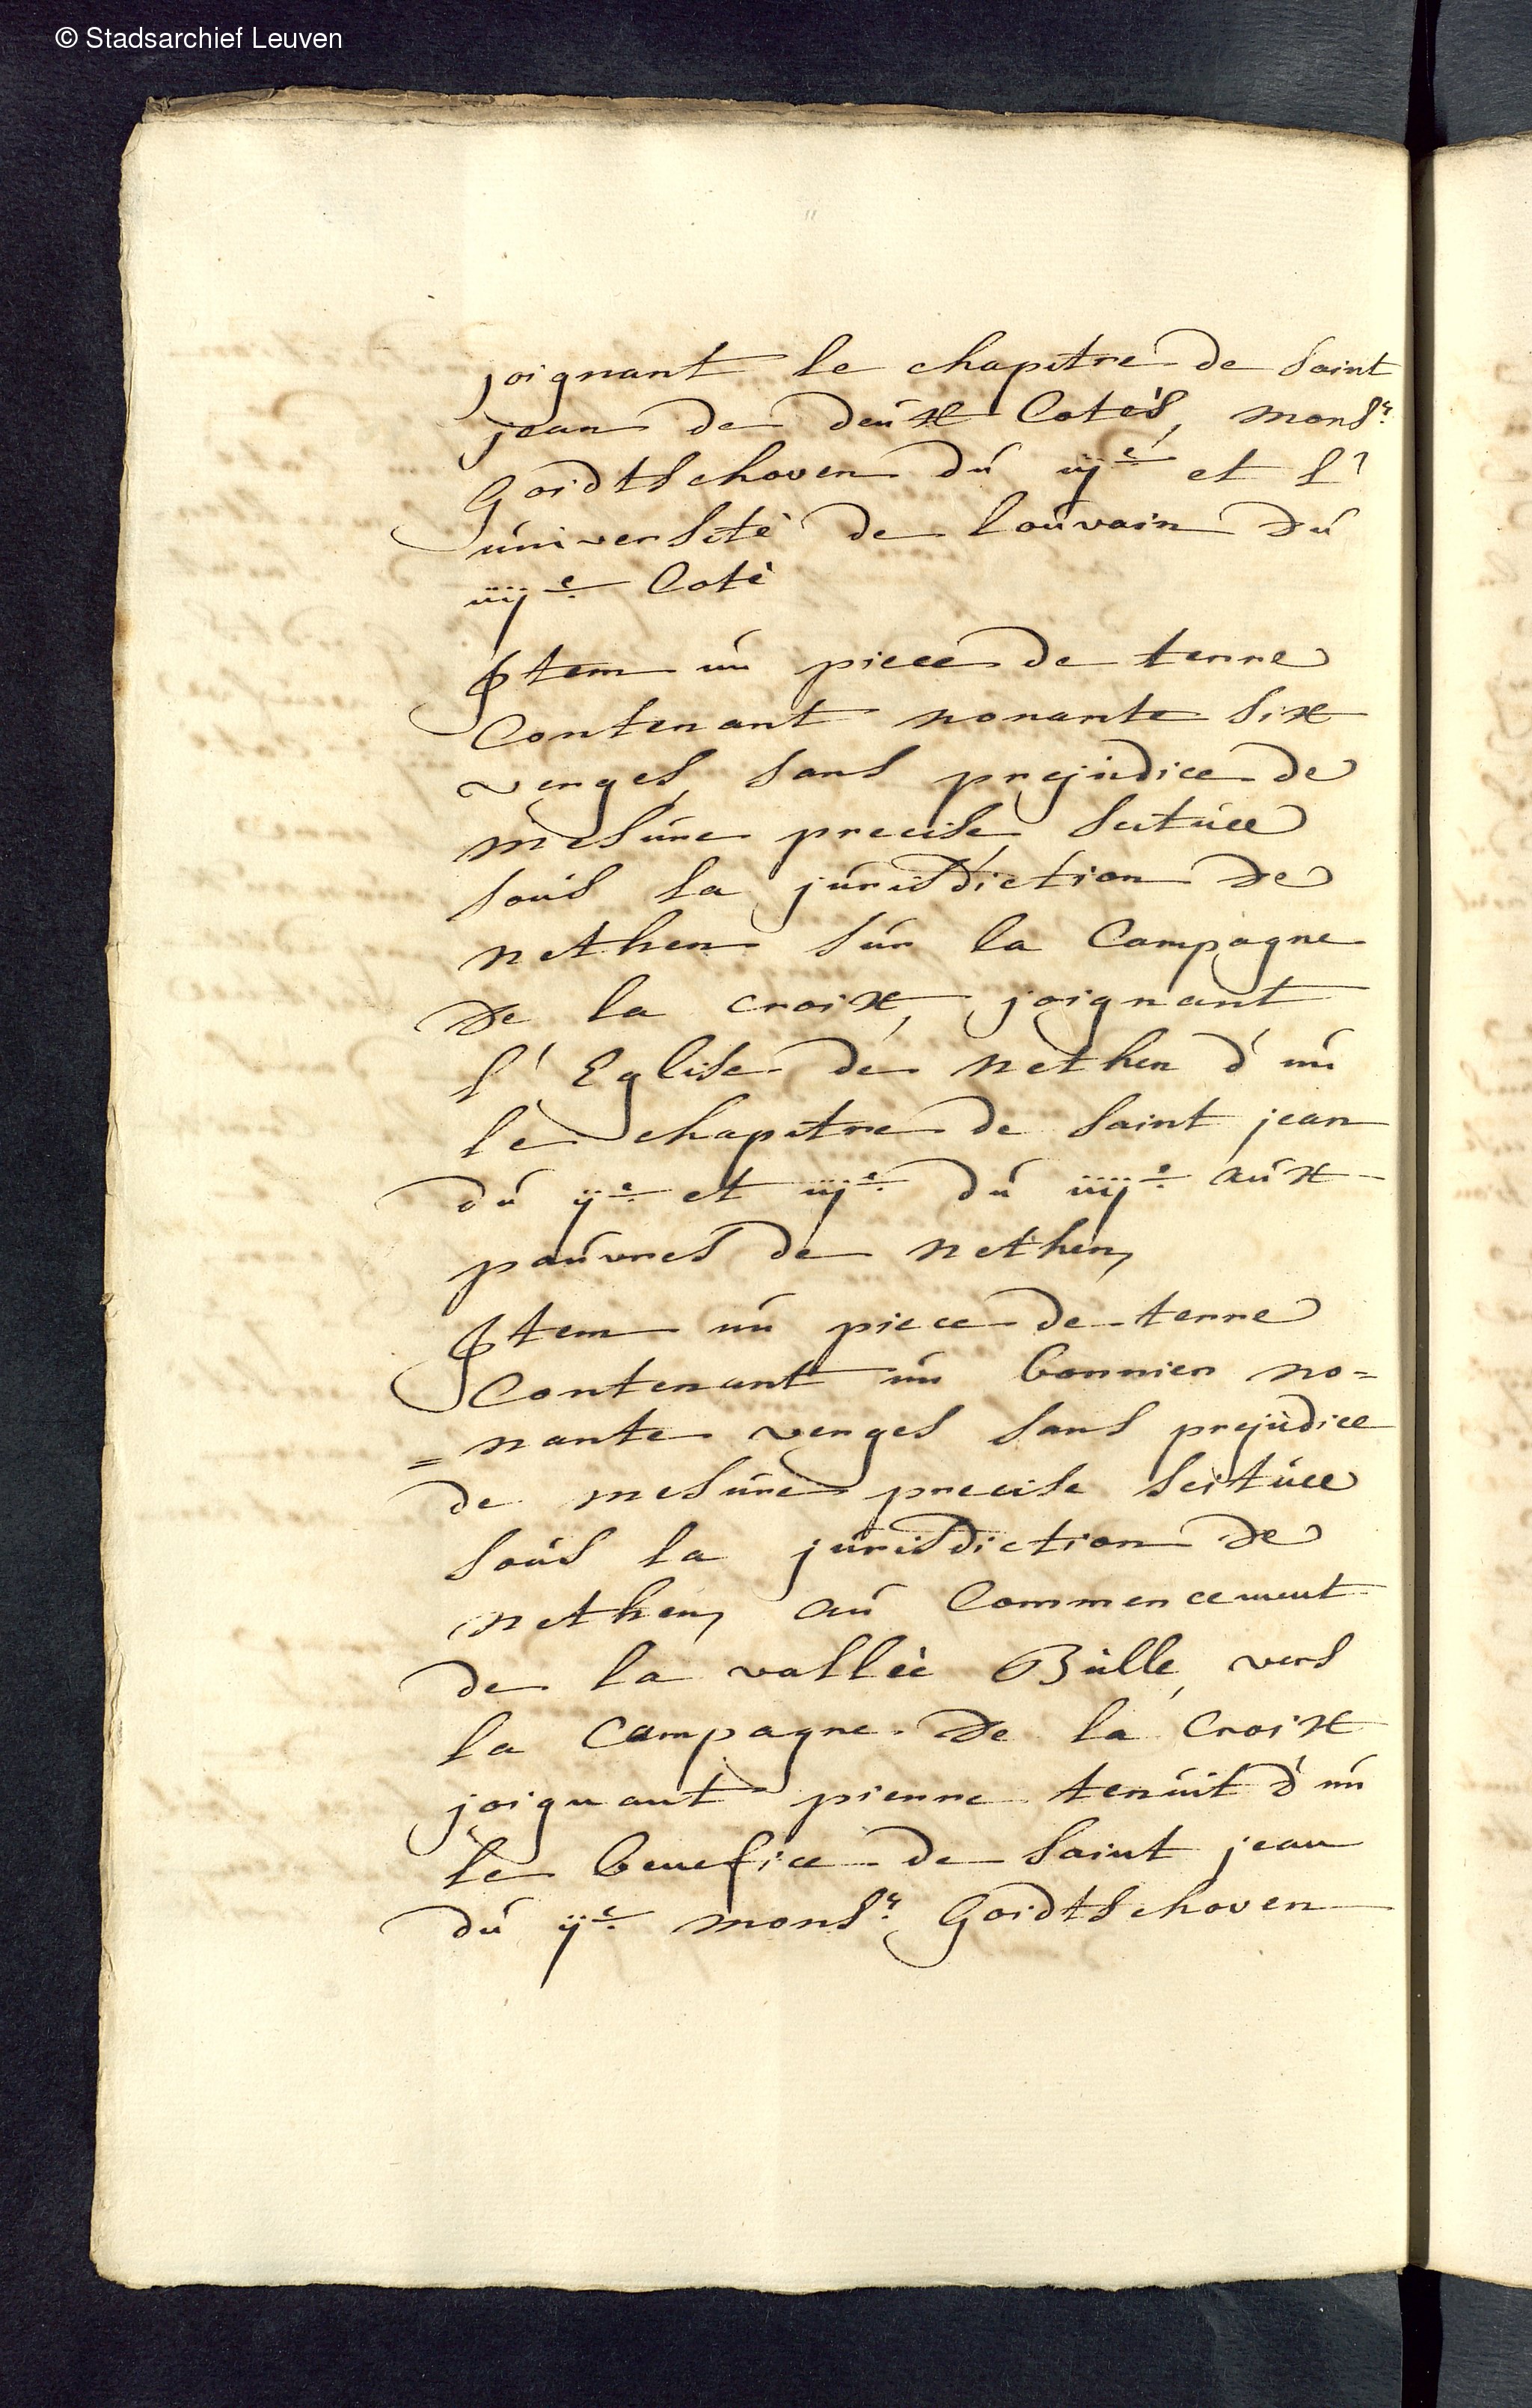 © Stadsarchief Leuven
joignant le chapitre de saint
jean de deux cotés, monsr.
Goidtshoven du iije. et l'
université de louvain du
iiije. coté
Item un piece de terre
contenant nonante six
verges, sans prejudice de
mesure precise, scituee
sous la jurisdiction de
nethen sur la campagne
de la croix, joignant
l'Eglise de nethen d'un
le chapitre de saint jean
du ije. et iije. du iiije. aux
pauvres de nethen,
Item un piece de terre
contenant un bonnier no=
=nante verges sans prejudice
de mesure precise scituee
sous la jurisdiction de
nethen, au commencement
de la vallée Bulle, vers
la campagne de la croix
joignant pierre tenuit d'un
le benefice de saint jean
du ije. monsr. Goidtshoven